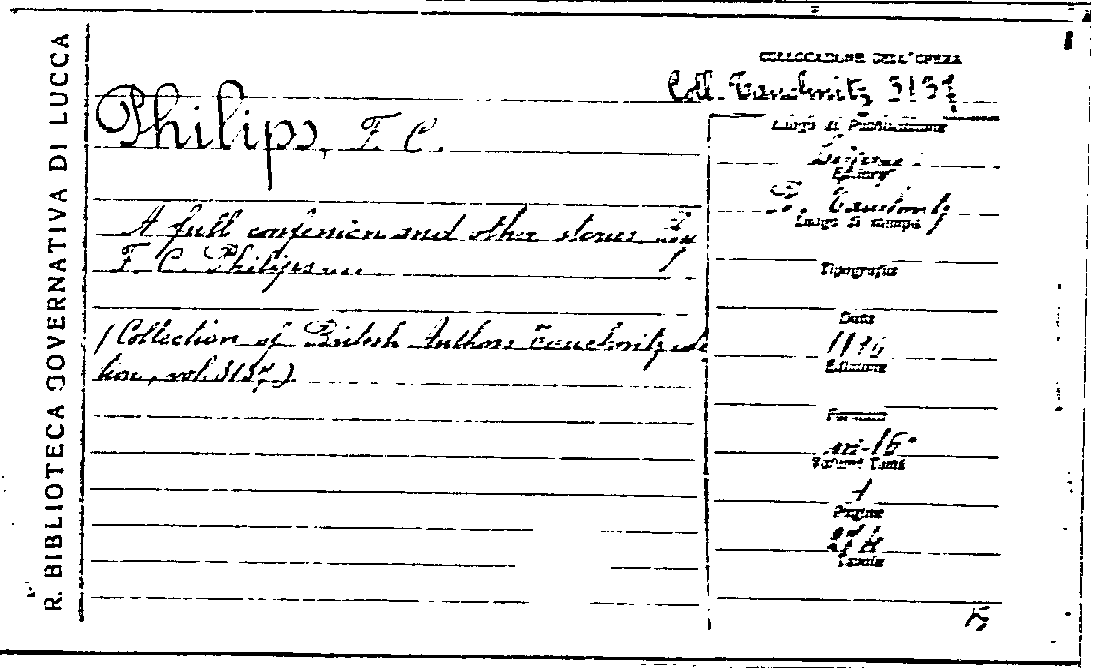 R. BIBLIOTECA GOVERNATIVA DI LUCCA
COLLOCAZIONE DELL'OPERA
Coll. Tauchnitz 3137
Philips, F. C.
A full confession and other stories by
F. C. Philips
(Collection of British Authors Tauchnitz edi
tion, vol. 3137)
Luogo di Pubblicazione
Editore
B. Tauchnitz
Luogo di stampa
Tipografus
Data
Edizione
Formato
in-16°
Volume Tomo
1
Pagine
Tavole